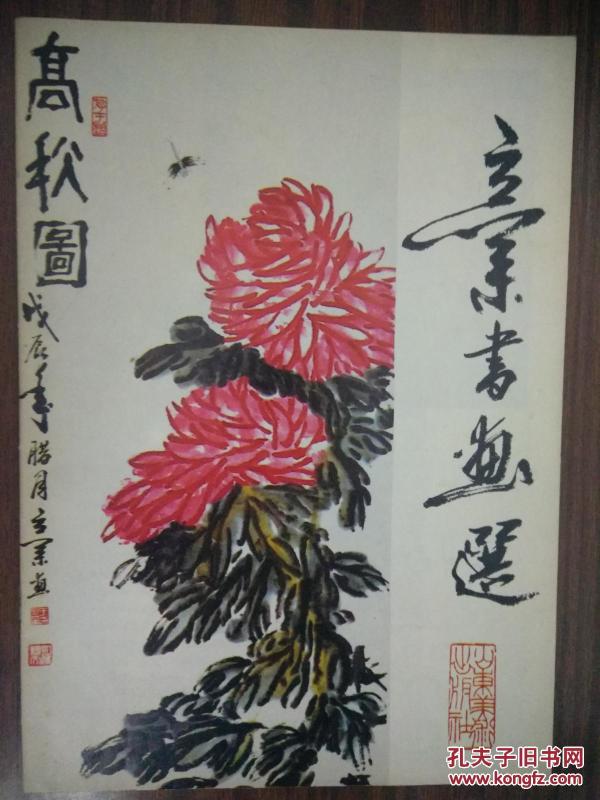 高秋圖
戊辰年腊月立業画
立業書画選
山東美術出版社
孔夫子旧书网
www.kongfz.com